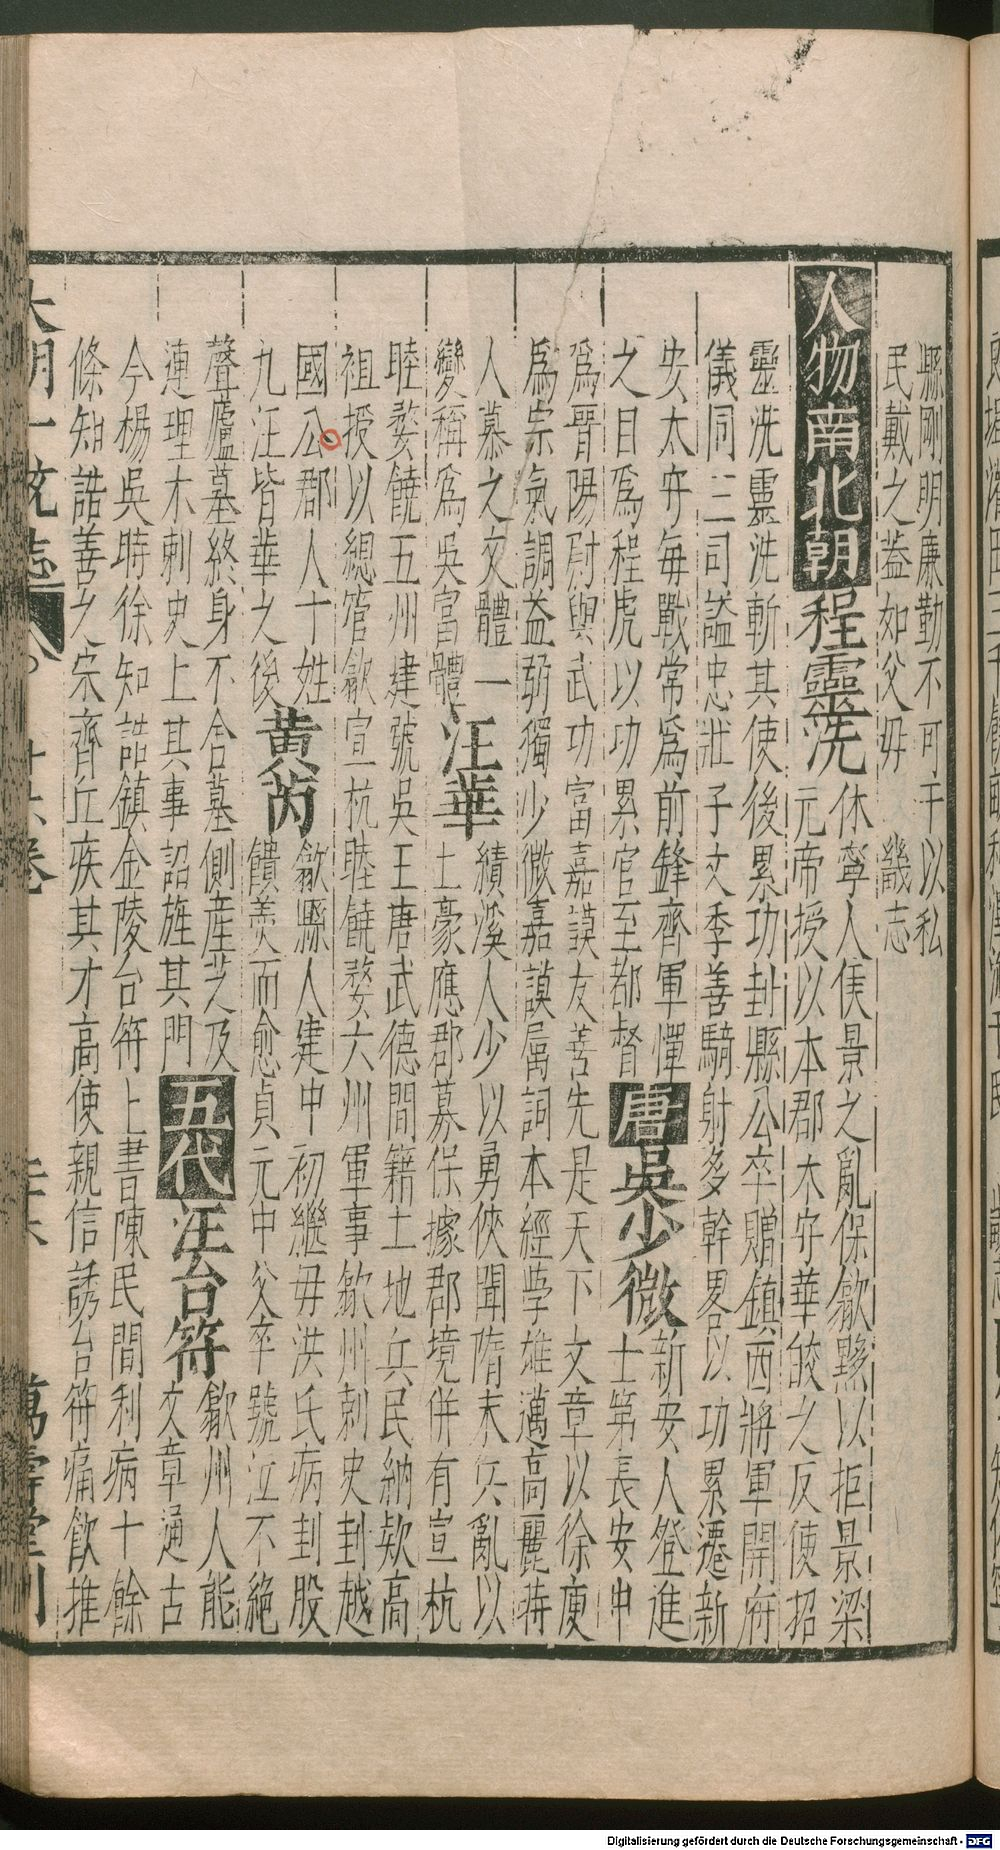 縣剛明廉勤不可干以私
民戴之益如父母 畿志
人物南北朝程靈洗
休寧人侯景之亂保歙黟以拒景梁
元帝授以本郡太守華皎之反使招
靈洗靈洗斬其使後累功封縣公卒贈鎮西將軍開府
儀同三司謚忠壯子文季善騎射多幹畧以功累遷新
安太守每戰常爲前鋒齊軍憚
之目爲程虎以功累官至都督
唐吳少微
新安人登進
士第長安中
爲晉陽尉與武功富嘉謨友善先是天下文章以徐庾
爲宗氣調益弱獨少微嘉謨屬詞本經學雄邁高麗蒋
人慕之文體一
變稱爲吳富體
汪華
績溪人少以勇俠聞隋末兵亂以
土豪應郡募保據郡境併有宣杭
睦婺饒五州建號吳王唐武德間籍土地兵民納欵高
祖授以總管歙宣杭睦饒婺六州軍事歙州刺史封越
國公郡人十姓
九汪皆華之後
黄芮
歙縣人建中初繼母洪氏病刲股
饋羹而愈貞元中父卒號泣不絕
聲廬墓終身不舍墓側産芝及
連理木刺史上其事詔旌其門
五代汪台符
歙州人能
文章通古
今楊吳時徐知誥鎮金陵台符上書陳民間利病十餘
條知誥善之宋齊丘疾其才高使親信誘台符痛飲推
大明一統志 十六卷 二十六 萬壽堂刊
Digitalisierung gefördert durch die Deutsche Forschungsgemeinschaft - DFG